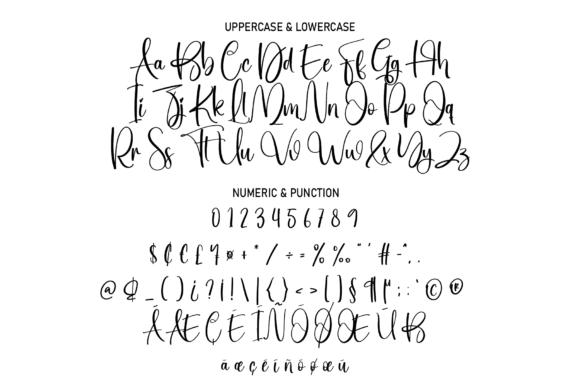 UPPERCASE & LOWERCASE
Aa Bb Cc Dd Ee Ff Gg Hh
Ii Jj Kk Ll Mm Nn Oo Pp Qq
Rr Ss Tt Uu Vv Ww Xx Yy Zz
NUMERIC & PUNCTION
0 1 2 3 4 5 6 7 8 9
$ ₵ € £ ¥ ¤ + * / ÷ = % ‰ " ' # - ^ , .
@ & _ ( ) ¿ ? ¡ ! \ | { } < > [ ] § ¶ : ; ' © ®
Á Æ Ç É Í Ñ Ó Ø Œ Ú ß
ã æ ç ê í ñ ô ø œ ú